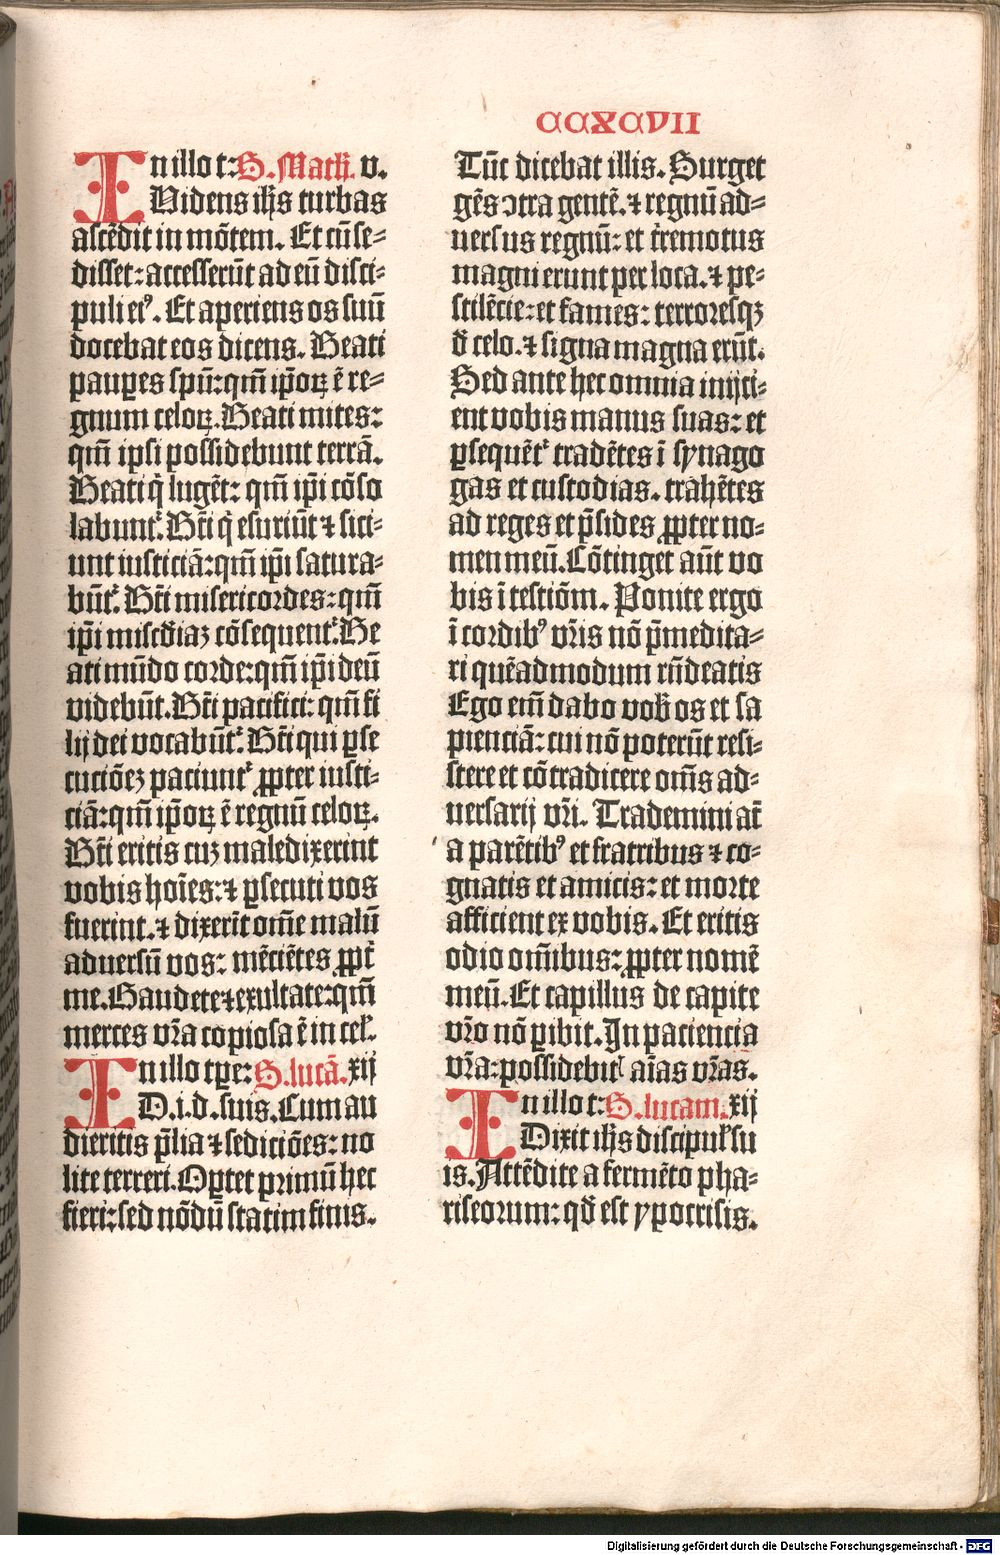 CCXCVII
In illo t: S. Math. v.
Videns ihs turbas
ascēdit in mōtem. Et cū se⸗
disset: accesserūt ad eū disci⸗
puli eiꝰ. Et aperiens os suū
docebat eos dicens. Beati
pauꝑes spū: qm̄ ip̄oꝝ ē re⸗
gnum celoꝝ. Beati mites:
qm̄ ipsi possidebunt terrā.
Beati q̄ lugēt: qm̄ ip̄i cōso
labunt᷑. Bt̄i q̄ esuriūt ⁊ sici⸗
unt iusticiā: qm̄ ip̄i satura⸗
būt᷑. Bt̄i misericordes: qm̄
ip̄i mis̄cdiaꝫ cōsequent᷑. Be
ati mūdo corde: qm̄ ip̄i deū
videbūt. Bt̄i pacifici: qm̄ fi
lij dei vocabūt᷑. Bt̄i qui ꝑse
cuciōeꝫ paciunt᷑ ꝓpter iusti⸗
ciā: qm̄ ip̄oꝝ ē regnū celoꝝ.
Bt̄i eritis cuꝫ maledixerint
vobis hoīes: ⁊ ꝑsecuti vos
fuerint. ⁊ dixerīt om̄e malū
aduersū vos: mēciētes ꝓpt̄
me. Gaudete ⁊ exultate: qm̄
merces vr̄a copiosa ē in cel̄.
In illo tꝑe: S. lucā. xij
D. i. d. suis. Cum au
dieritis p̄lia ⁊ sediciōes: no
lite terreri. Oꝑtet primū hec
fieri: sed nōdū statim finis.
Tūc dicebat illis. Surget
gēs ↄtra gentē. ⁊ regnū ad⸗
uersus regnū: et t̄remotus
magni erunt per loca. ⁊ pe⸗
stilēcie: et fames: terroresqꝫ
d̄ celo. ⁊ signa magna erūt.
Sed ante hec omnia inijci⸗
ent vobis manus suas: et
ꝑsequēt᷑ tradētes ī synago
gas et custodias. trahētes
ad reges et p̄sides ꝓpter no⸗
men meū. Cōtinget aūt vo
bis ī testiōm. Ponite ergo
ī cordibꝰ vr̄is nō p̄medita⸗
ri quēadmodum rn̄deatis
Ego em̄ dabo vob̄ os et sa
pienciā: cui nō poterūt resi⸗
stere et cōtradicere om̄s ad⸗
uersarij vr̄i. Trademini at̄
a parētibꝰ et fratribus ⁊ co⸗
gnatis et amicis: et morte
afficient ex vobis. Et eritis
odio om̄ibus: ꝓpter nomē
meū. Et capillus de capite
vr̄o nō ꝑibit. In paciencia
vr̄a: possidebitꝭ aīas vr̄as.
In illo t: S. lucam. xij
Dixit ihs discipul̄ su
is. Attēdite a fermēto pha⸗
riseorum: qd̄ est ypocrisis.
Digitalisierung gefördert durch die Deutsche Forschungsgemeinschaft - DFG